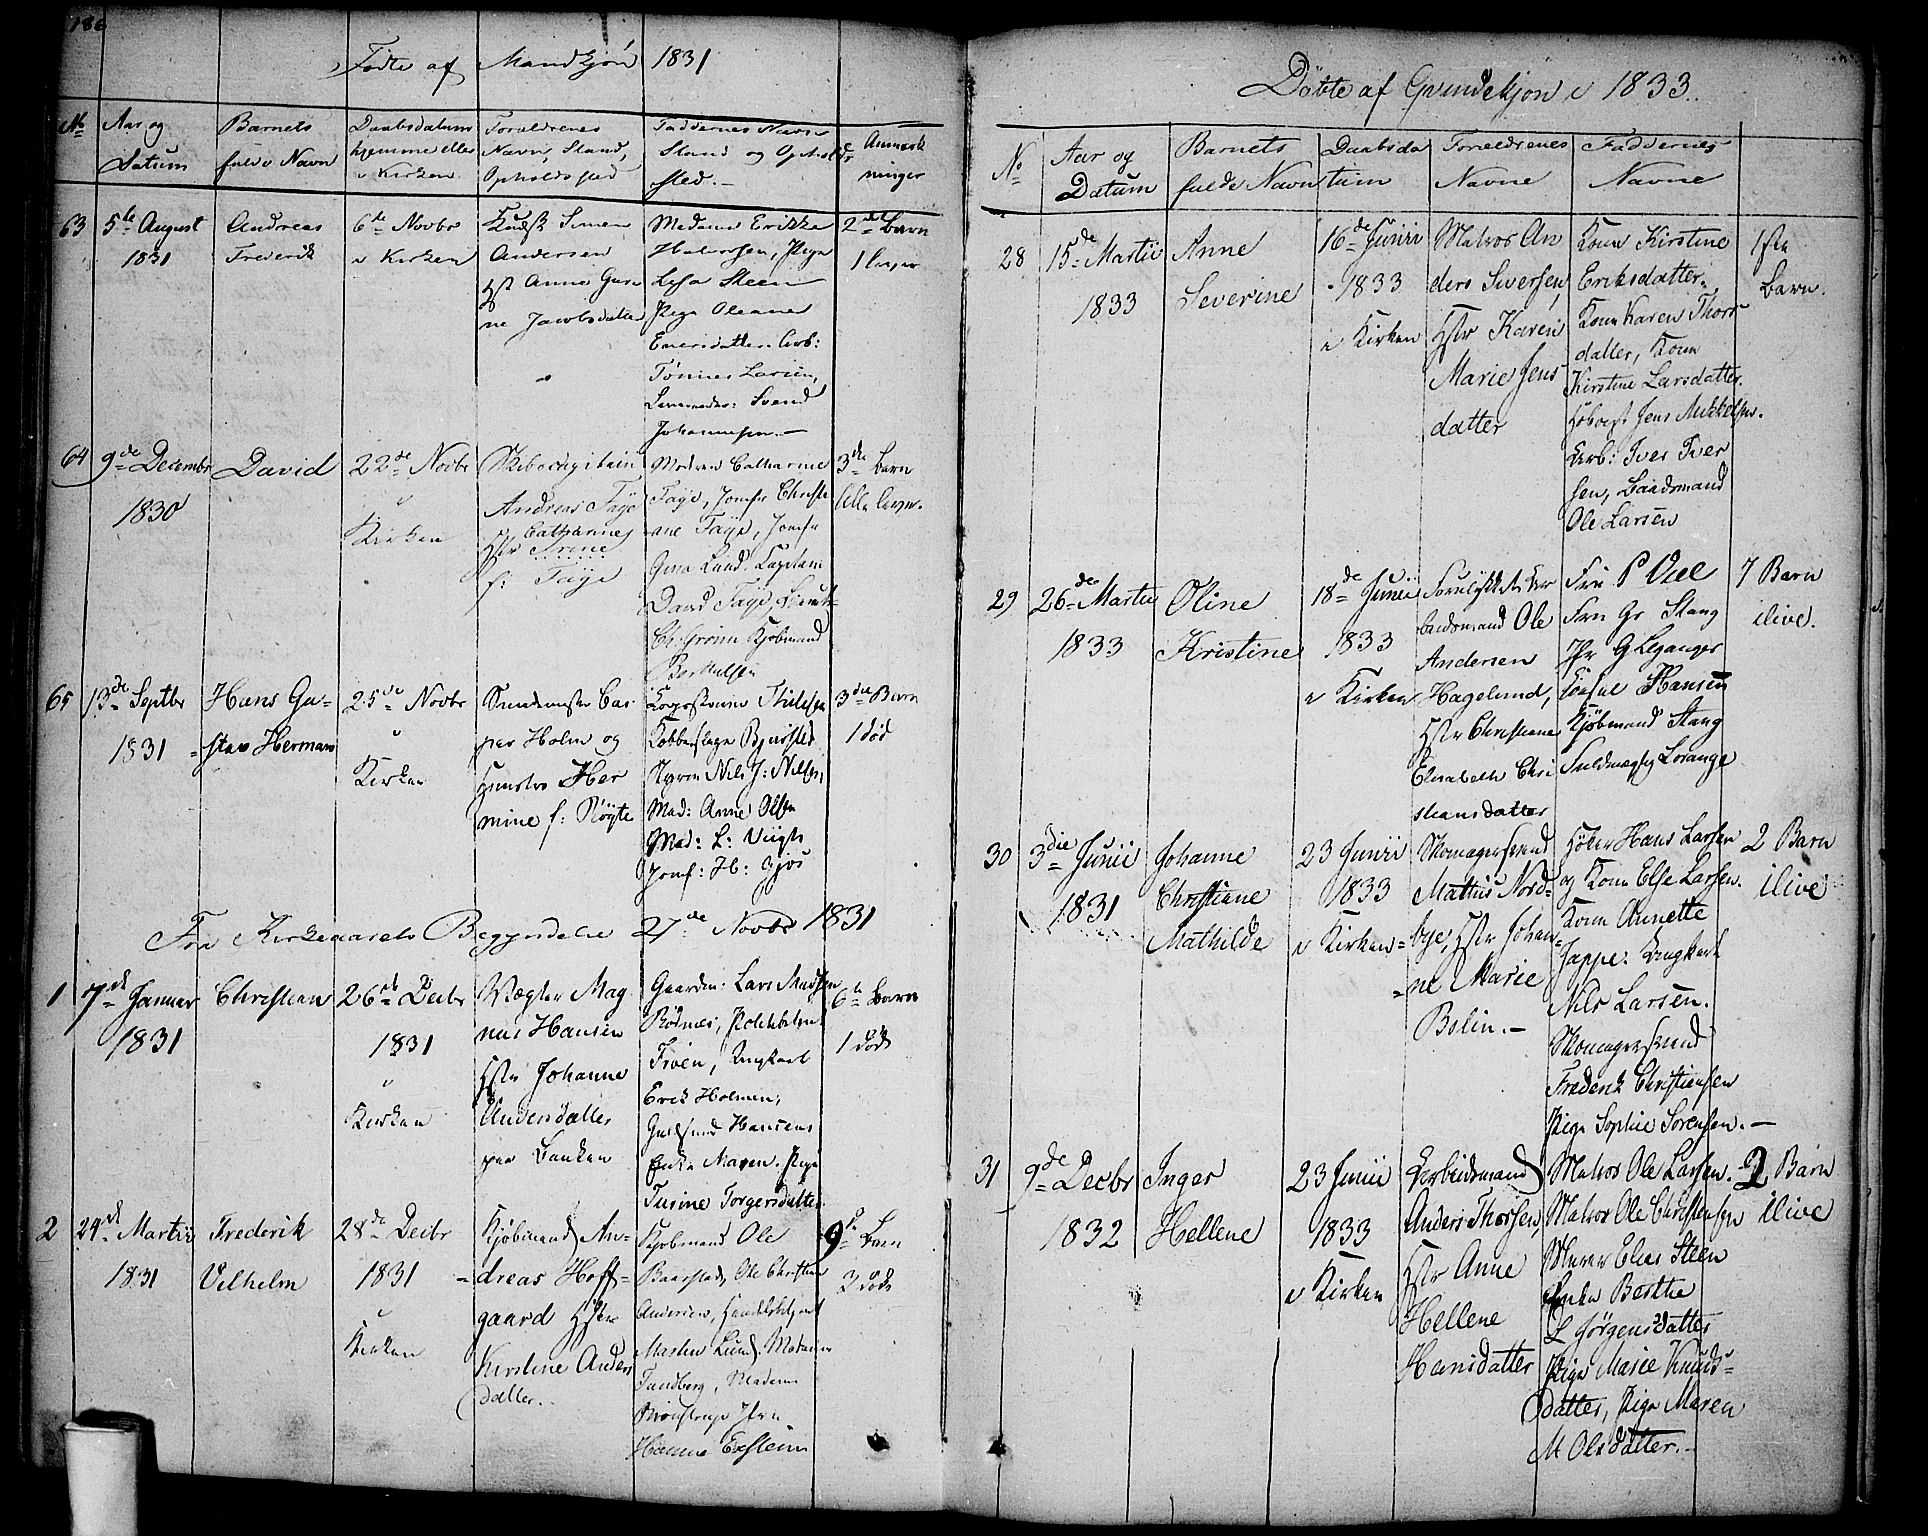 186
Fødte af Mandkjøn 1831
No
Aar og
Datum
Barnets
fulde Navn
Daabsdatum
hjemme eller
i Kirken
Forældrenes
Navn, Stand,
Opholdssted
Faddernes Navn
Stand og Ophold
sted.
Anmærk
ninger
63
5te August
1831
Andreas
Frederik
6te Novbr
i Kirken
Simen
Andersen
Hst Anne Gur
ne Jacobsdatter
Madame Erikka
Halvorsen, Pige
Steen
Pige Oleane
Enersdatter. Arb:
Tønnes Larsen,
Svend
Johannesen.
2det Barn
1 lever
64
9de Decembr
1830
David
22de Novbr
i
Kirken
Andreas Faÿe
Cathrines
Hstr Trine
f: Faÿe
Madam Catharine
Faÿe, Jomfr Christi
ane Faÿe, Jomfr
Gina Lund. Kapitain
David Faÿe,
Kjøbmand
3die Barn
Alle lever.
65
13de Septbr
1831
Hans Gu-
stav Herman
25de Novbr
i
Kirken
Cas
per Holm og
Hustro Her
mine f: Røÿte
Kobberslager Bjørsted
Nils J: Nilsen,
Mad: Anne Olsen
Mad: L: Viigh
Jomf: H:
3die Barn
1 død
Fra Kirkeaarets Begyndelse 27de Novbr 1831
1
7de Januar
1831
Christian
26de Decbr
1831
i
Kirken
Vægter Mag
nus Hansen
Hstr Johanne
Andersdatter
paa Banken
Gaardm: Lars Madsen
Froen, Ungkarl
Erik Holmen,
Hansens
Enke Maren. Pige
Turine Torgersdatter
6te Barn
1 død
2
24de Martii
1831
Frederik
Vilhelm
28de Decbr
1831
i
Kirken
Kjøbmand An-
dreas Hoff-
gaard Hstr
Kirstine Anders
datter.
Kjøbmand Ole
Baarstad, Ole Christian
Andersen, Handelsbetjent
Martin Lund. Madame
Tandberg, Madame
Jfru
Hanna Enstein
9de Barn
2 døde
Døbte af Qvindekjøn i 1833
No
Aar og
Datum
Barnets
fulde Navn
Daabsda
tum
Forældrenes
Navne
Faddernes
Navne
28
15de Martii
1833
Anne
Severine
16de Junii
1833
i Kirken
Matros An
ders Siversen,
Hstr Karen
Marie Jens
datter
Kone Kirstine
Eriksdatter.
Kone Karen Thors
datter, Kone
Kirstine Larsdatter.
Jens Mikkelsen.
Arb: Iver Iver
sen, Baadsmand
Ole Larsen
1ste
Barn.
29
26de Martii
1833
Oline
Kristine
18de Junii
1833
i Kirken
Forulykket Ar
beidsmand Ole
Andersen
Hagelund,
Hstr Christiane
Elisabeth Chri
stiansdatter
Fru P Vae
Fru Gr Stang
Jfr G Leganger
Consul Hansen
Kjøbmand Stang
Fuldmægtig Lorange
7 Barn
ilive.
30
3die Junii
1831
Johanne
Christiane
Mathilde
23 Junii
1833
i Kirken
Skomagersvend
Mattius Nord-
bye, Hstr Johan-
ne Marie
Bolin.
Høker Hans Larsen
og Kone Else Larsen.
Kone Annette
Jappe. Ungkarl
Nils Larsen.
Skomagersvend
Frederik Christiensen
Pige Sophie Sørensen.
2 Barn
ilive
31
9de Decbr
1832
Inger
Hellene
23 Junii
1833
i Kirken
Arbeidsmand
Anders Thorsen,
Hstr Anne
Hellene
Hansdatter
Matros Ole Larsen.
Matros Ole Christensen
Murer Elias Steen
Enke Berthe
L Jørgensdatter
Pige Marie Knuds-
datter, Pige Maren
M Olsdatter.
2 Barn
ilive